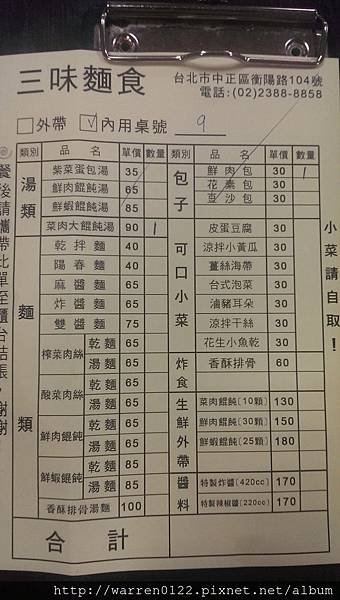 三味麵食
台北市中正區衡陽路104號
電話:(02)2388-8858
外帶 ✓內用桌號 9
餐後請攜帶此單至櫃台結帳,謝謝
類別 品名 單價 數量
湯類
紫菜蛋包湯 35
鮮肉餛飩湯 65
鮮蝦餛飩湯 85
菜肉大餛飩湯 90 1
麵類
乾拌麵 40
陽春麵 40
麻醬麵 65
炸醬麵 65
雙醬麵 75
榨菜肉絲 乾麵 65
湯麵 65
酸菜肉絲 乾麵 65
湯麵 65
鮮肉餛飩 乾麵 65
湯麵 65
鮮蝦餛飩 乾麵 85
湯麵 85
香酥排骨湯麵 100
合計
類別 品名 單價 數量
包子
鮮肉包 30 1
花素包 30
豆沙包 30
可口小菜
皮蛋豆腐 30
涼拌小黃瓜 30
薑絲海帶 30
台式泡菜 30
滷豬耳朵 30
涼拌干絲 30
花生小魚乾 30
炸食
香酥排骨 60
生鮮外帶
菜肉餛飩(10顆) 130
鮮肉餛飩(30顆) 150
鮮蝦餛飩(25顆) 180
醬料
特製炸醬(420cc) 170
特製辣椒醬(220cc) 170
小菜請自取!
http://warren0122.pixnet.net/album